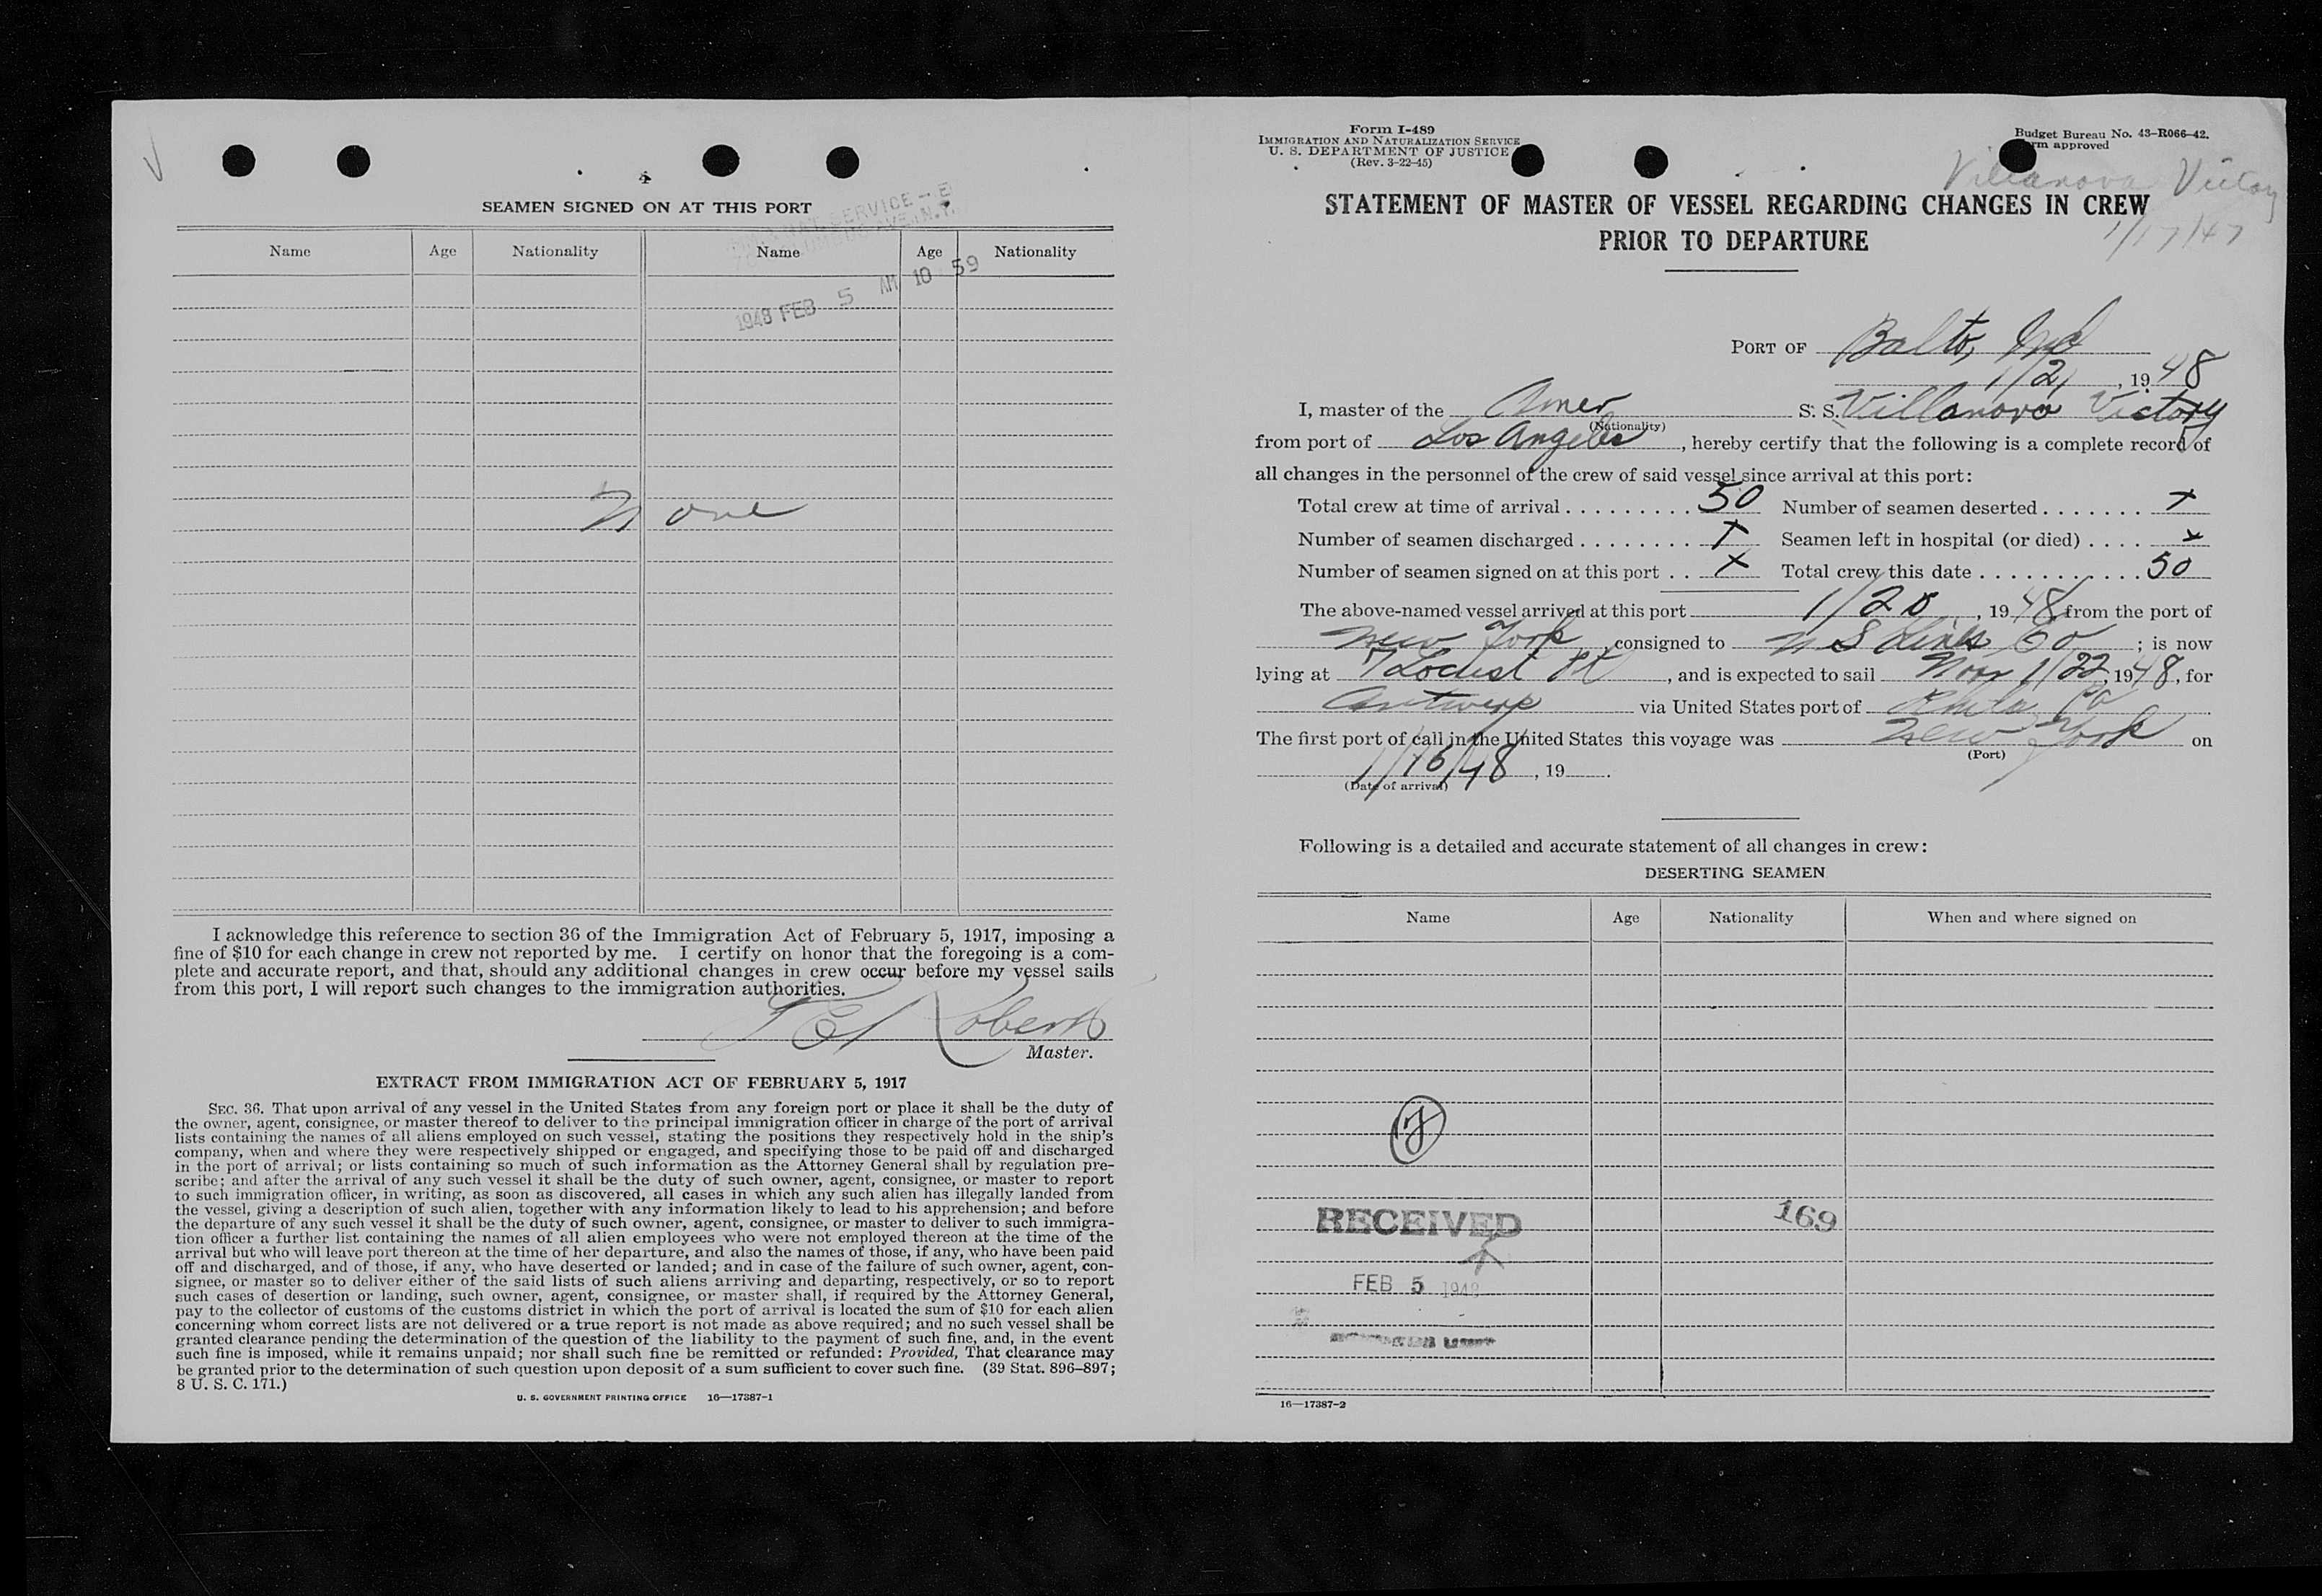 4
SEAMEN SIGNED ON AT THIS PORT
Name Age Nationality Name Age Nationality
1948 FEB 5 AM 10 59
None
I acknowledge this reference to section 36 of the Immigration Act of February 5, 1917, imposing a
fine of $10 for each change in crew not reported by me. I certify on honor that the foregoing is a com-
plete and accurate report, and that, should any additional changes in crew occur before my vessel sails
from this port, I will report such changes to the immigration authorities.
Roberts
Master.
EXTRACT FROM IMMIGRATION ACT OF FEBRUARY 5, 1917
SEC. 36. That upon arrival of any vessel in the United States from any foreign port or place it shall be the duty of
the owner, agent, consignee, or master thereof to deliver to the principal immigration officer in charge of the port of arrival
lists containing the names of all aliens employed on such vessel, stating the positions they respectively hold in the ship's
company, when and where they were respectively shipped or engaged, and specifying those to be paid off and discharged
in the port of arrival; or lists containing so much of such information as the Attorney General shall by regulation pre-
scribe; and after the arrival of any such vessel it shall be the duty of such owner, agent, consignee, or master to report
to such immigration officer, in writing, as soon as discovered, all cases in which any such alien has illegally landed from
the vessel, giving a description of such alien, together with any information likely to lead to his apprehension; and before
the departure of any such vessel it shall be the duty of such owner, agent, consignee, or master to deliver to such immigra-
tion officer a further list containing the names of all alien employees who were not employed thereon at the time of the
arrival but who will leave port thereon at the time of her departure, and also the names of those, if any, who have been paid
off and discharged, and of those, if any, who have deserted or landed; and in case of the failure of such owner, agent, con-
signee, or master so to deliver either of the said lists of such aliens arriving and departing, respectively, or so to report
such cases of desertion or landing, such owner, agent, consignee, or master shall, if required by the Attorney General,
pay to the collector of customs of the customs district in which the port of arrival is located the sum of $10 for each alien
concerning whom correct lists are not delivered or a true report is not made as above required; and no such vessel shall be
granted clearance pending the determination of the question of the liability to the payment of such fine, and, in the event
such fine is imposed, while it remains unpaid; nor shall such fine be remitted or refunded: Provided, That clearance may
be granted prior to the determination of such question upon deposit of a sum sufficient to cover such fine. (39 Stat. 896–897;
8 U. S. C. 171.)
U. S. GOVERNMENT PRINTING OFFICE 16—17387-1
Form I-489
IMMIGRATION AND NATURALIZATION SERVICE
U. S. DEPARTMENT OF JUSTICE
(Rev. 3-22-45)
Budget Bureau No. 43–R066–42.
approved
Villanova Victory
1/17/47
STATEMENT OF MASTER OF VESSEL REGARDING CHANGES IN CREW
PRIOR TO DEPARTURE
PORT OF Balto, Md
1/21, 1948
I, master of the Amer S. S. Villanova Victory
(Nationality)
from port of Los Angeles, hereby certify that the following is a complete record of
all changes in the personnel of the crew of said vessel since arrival at this port:
Total crew at time of arrival 50 Number of seamen deserted x
Number of seamen discharged x Seamen left in hospital (or died) x
Number of seamen signed on at this port x Total crew this date 50
The above-named vessel arrived at this port 1/20, 1948 from the port of
New York, consigned to U S Lines Co; is now
lying at 7 Locust Pt, and is expected to sail Noon 1/22, 1948, for
Antwerp via United States port of Phila Pa
The first port of call in the United States this voyage was New York on
(Port)
1/16/48, 19 .
(Date of arrival)
Following is a detailed and accurate statement of all changes in crew:
DESERTING SEAMEN
Name Age Nationality When and where signed on
RECEIVED
169
FEB 5 1948
16—17387-2